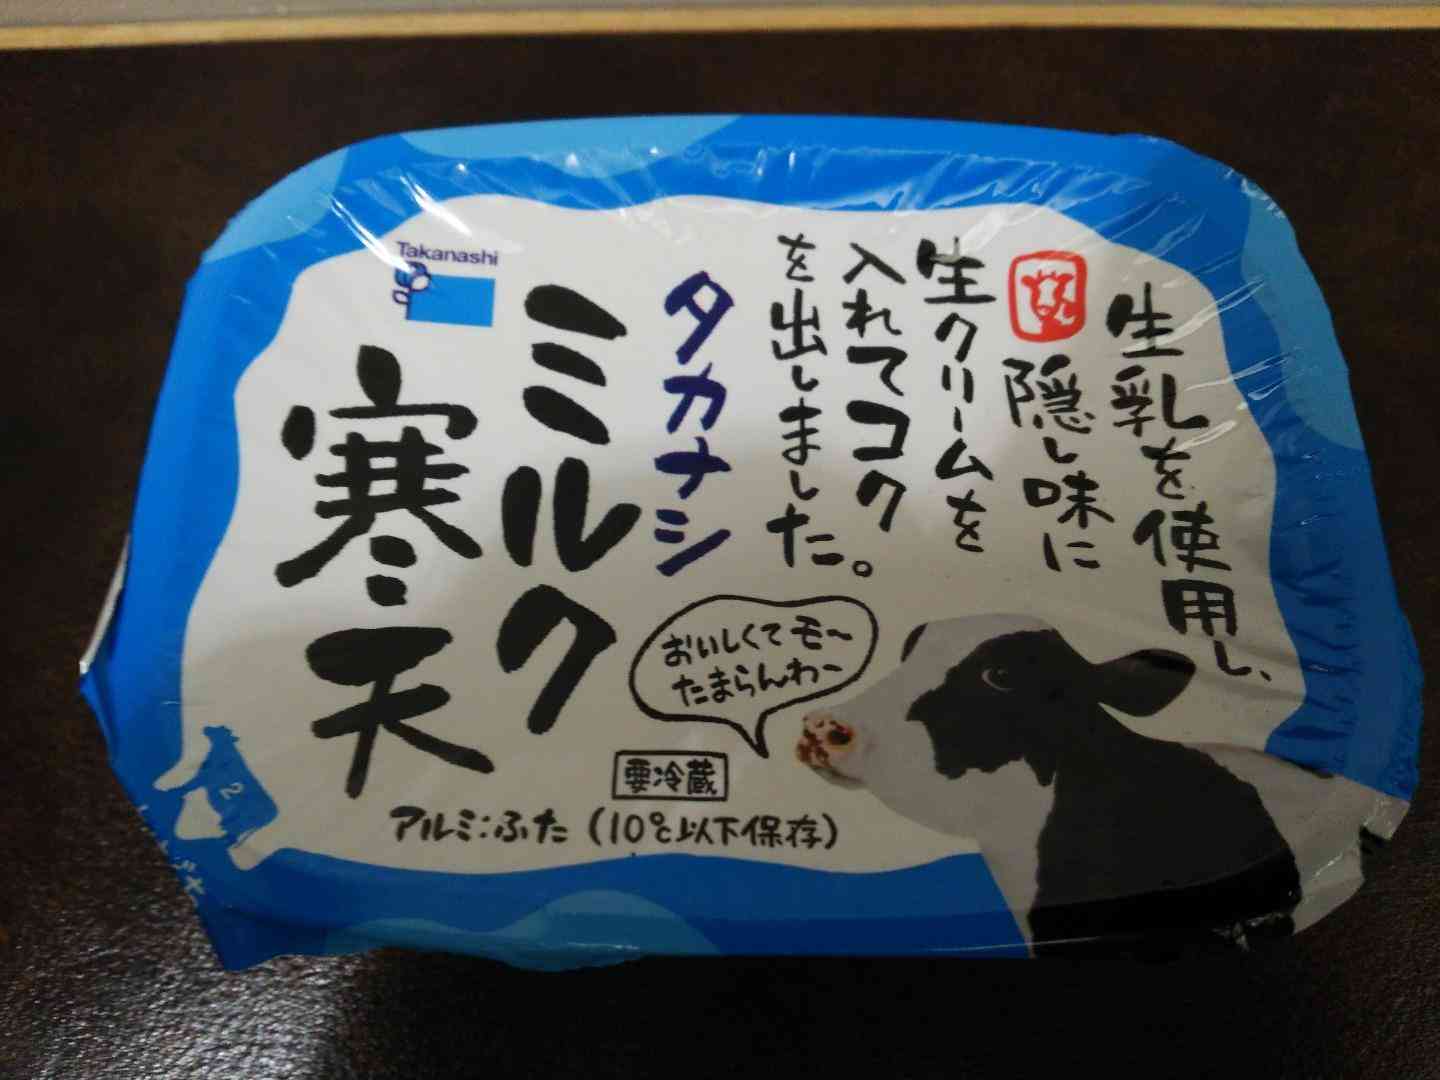 Takanashi
生乳を使用し、
隠し味に
生クリームを
入れてコク
を出しました。
タカナシ
ミルク
寒天
おいしくてモ〜
たまらんわ〜
要冷蔵
アルミ:ふた(10℃以下保存)
2